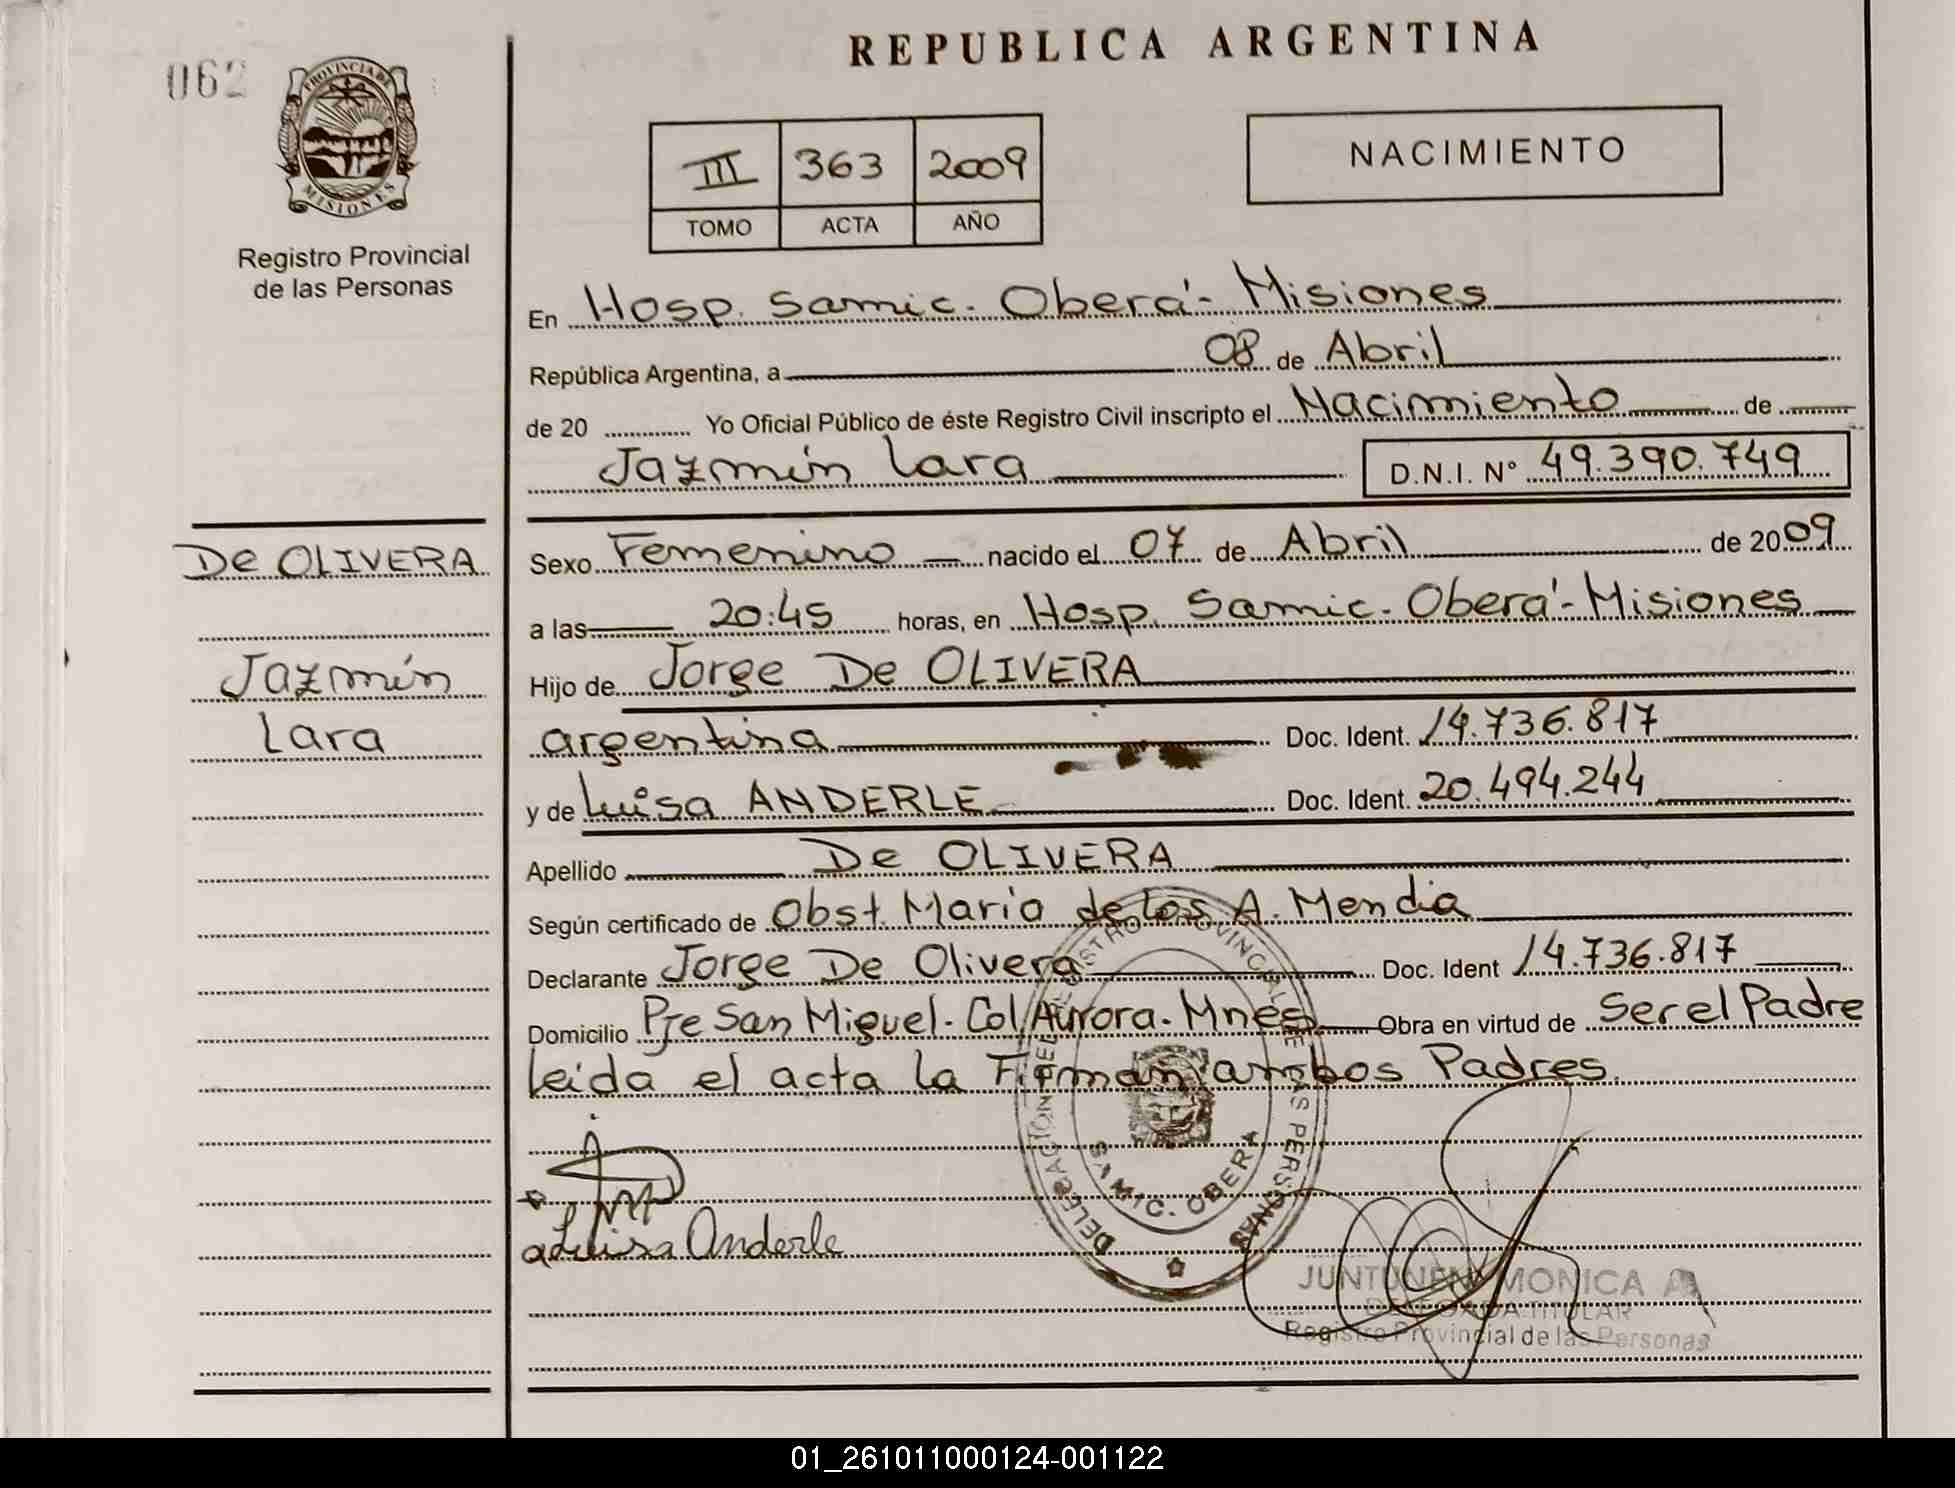 REPUBLICA ARGENTINA
062
PROVINCIA DE
MISIONES
Registro Provincial
de las Personas
III 363 2009
TOMO ACTA AÑO
NACIMIENTO
En Hosp. Samic. Oberá - Misiones
República Argentina, a 08 de Abril
de 20 Yo Oficial Público de éste Registro Civil inscripto el Nacimiento de
Jazmín Lara D.N.I. N° 49.390.749
De OLIVERA
Jazmín
Lara
Sexo Femenino nacido el 07 de Abril de 2009
a las 20:45 horas, en Hosp. Samic. Oberá - Misiones
Hijo de Jorge De OLIVERA
argentina Doc. Ident. 14.736.817
y de Luisa ANDERLE Doc. Ident. 20.494.244
Apellido De OLIVERA
Según certificado de Obst. María de los A. Mendia
Declarante Jorge De Olivera Doc. Ident 14.736.817
Domicilio Pje San Miguel. Col/Aurora. Mnes Obra en virtud de Ser el Padre
leida el acta la Firman ambos Padres.
Luisa Anderle
DELEGACION DEL REGISTRO PROVINCIAL DE LAS PERSONAS
SAMIC. OBERA
JUNTUNEN MONICA A
DELEGADA TITULAR
Registro Provincial de las Personas
01_261011000124-001122